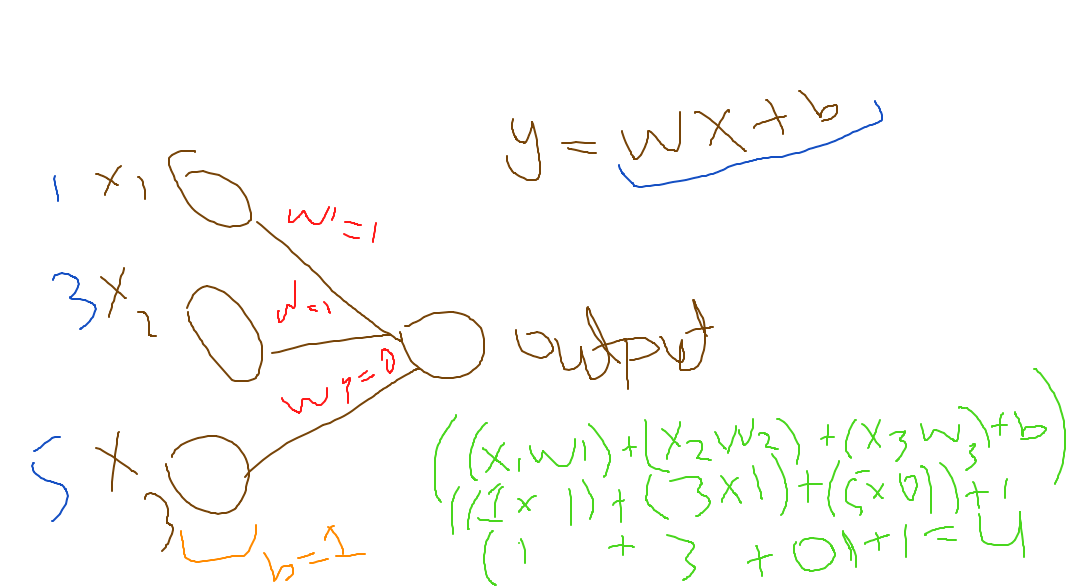 y = wx + b
1 x1
w1 = 1
3 x2
w = 1
output
w = 0
5 x3
((x1w1) + (x2w2) + (x3w3) + b)
((1x1) + (3x1) + (5x0)) + 1
(1 + 3 + 0) + 1 = 4
b = 1